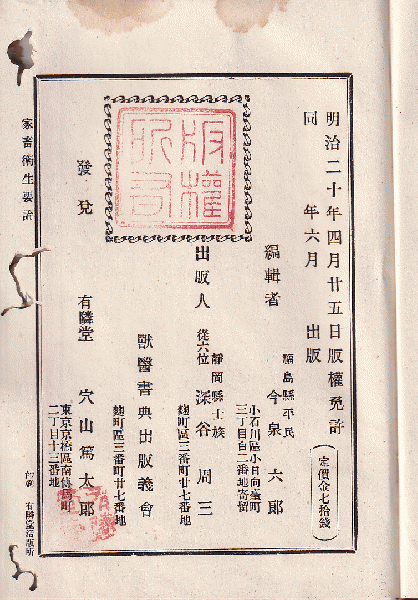 明治二十年四月廿五日版權免許
同　年六月　出版
定價金七拾錢
編輯者
福島縣平民
今泉六郎
小石川區小日向臺町
三丁目百二番地寄留
出版人
從六位
靜岡縣士族
深谷周三
麹町區三番町廿七番地
獸醫書典出版義會
麹町區三番町廿七番地
發兌
有隣堂
穴山篤太郎
東京京橋區南傳馬町
二丁目十三番地
版權所有
家畜衛生要論
有隣堂活版所